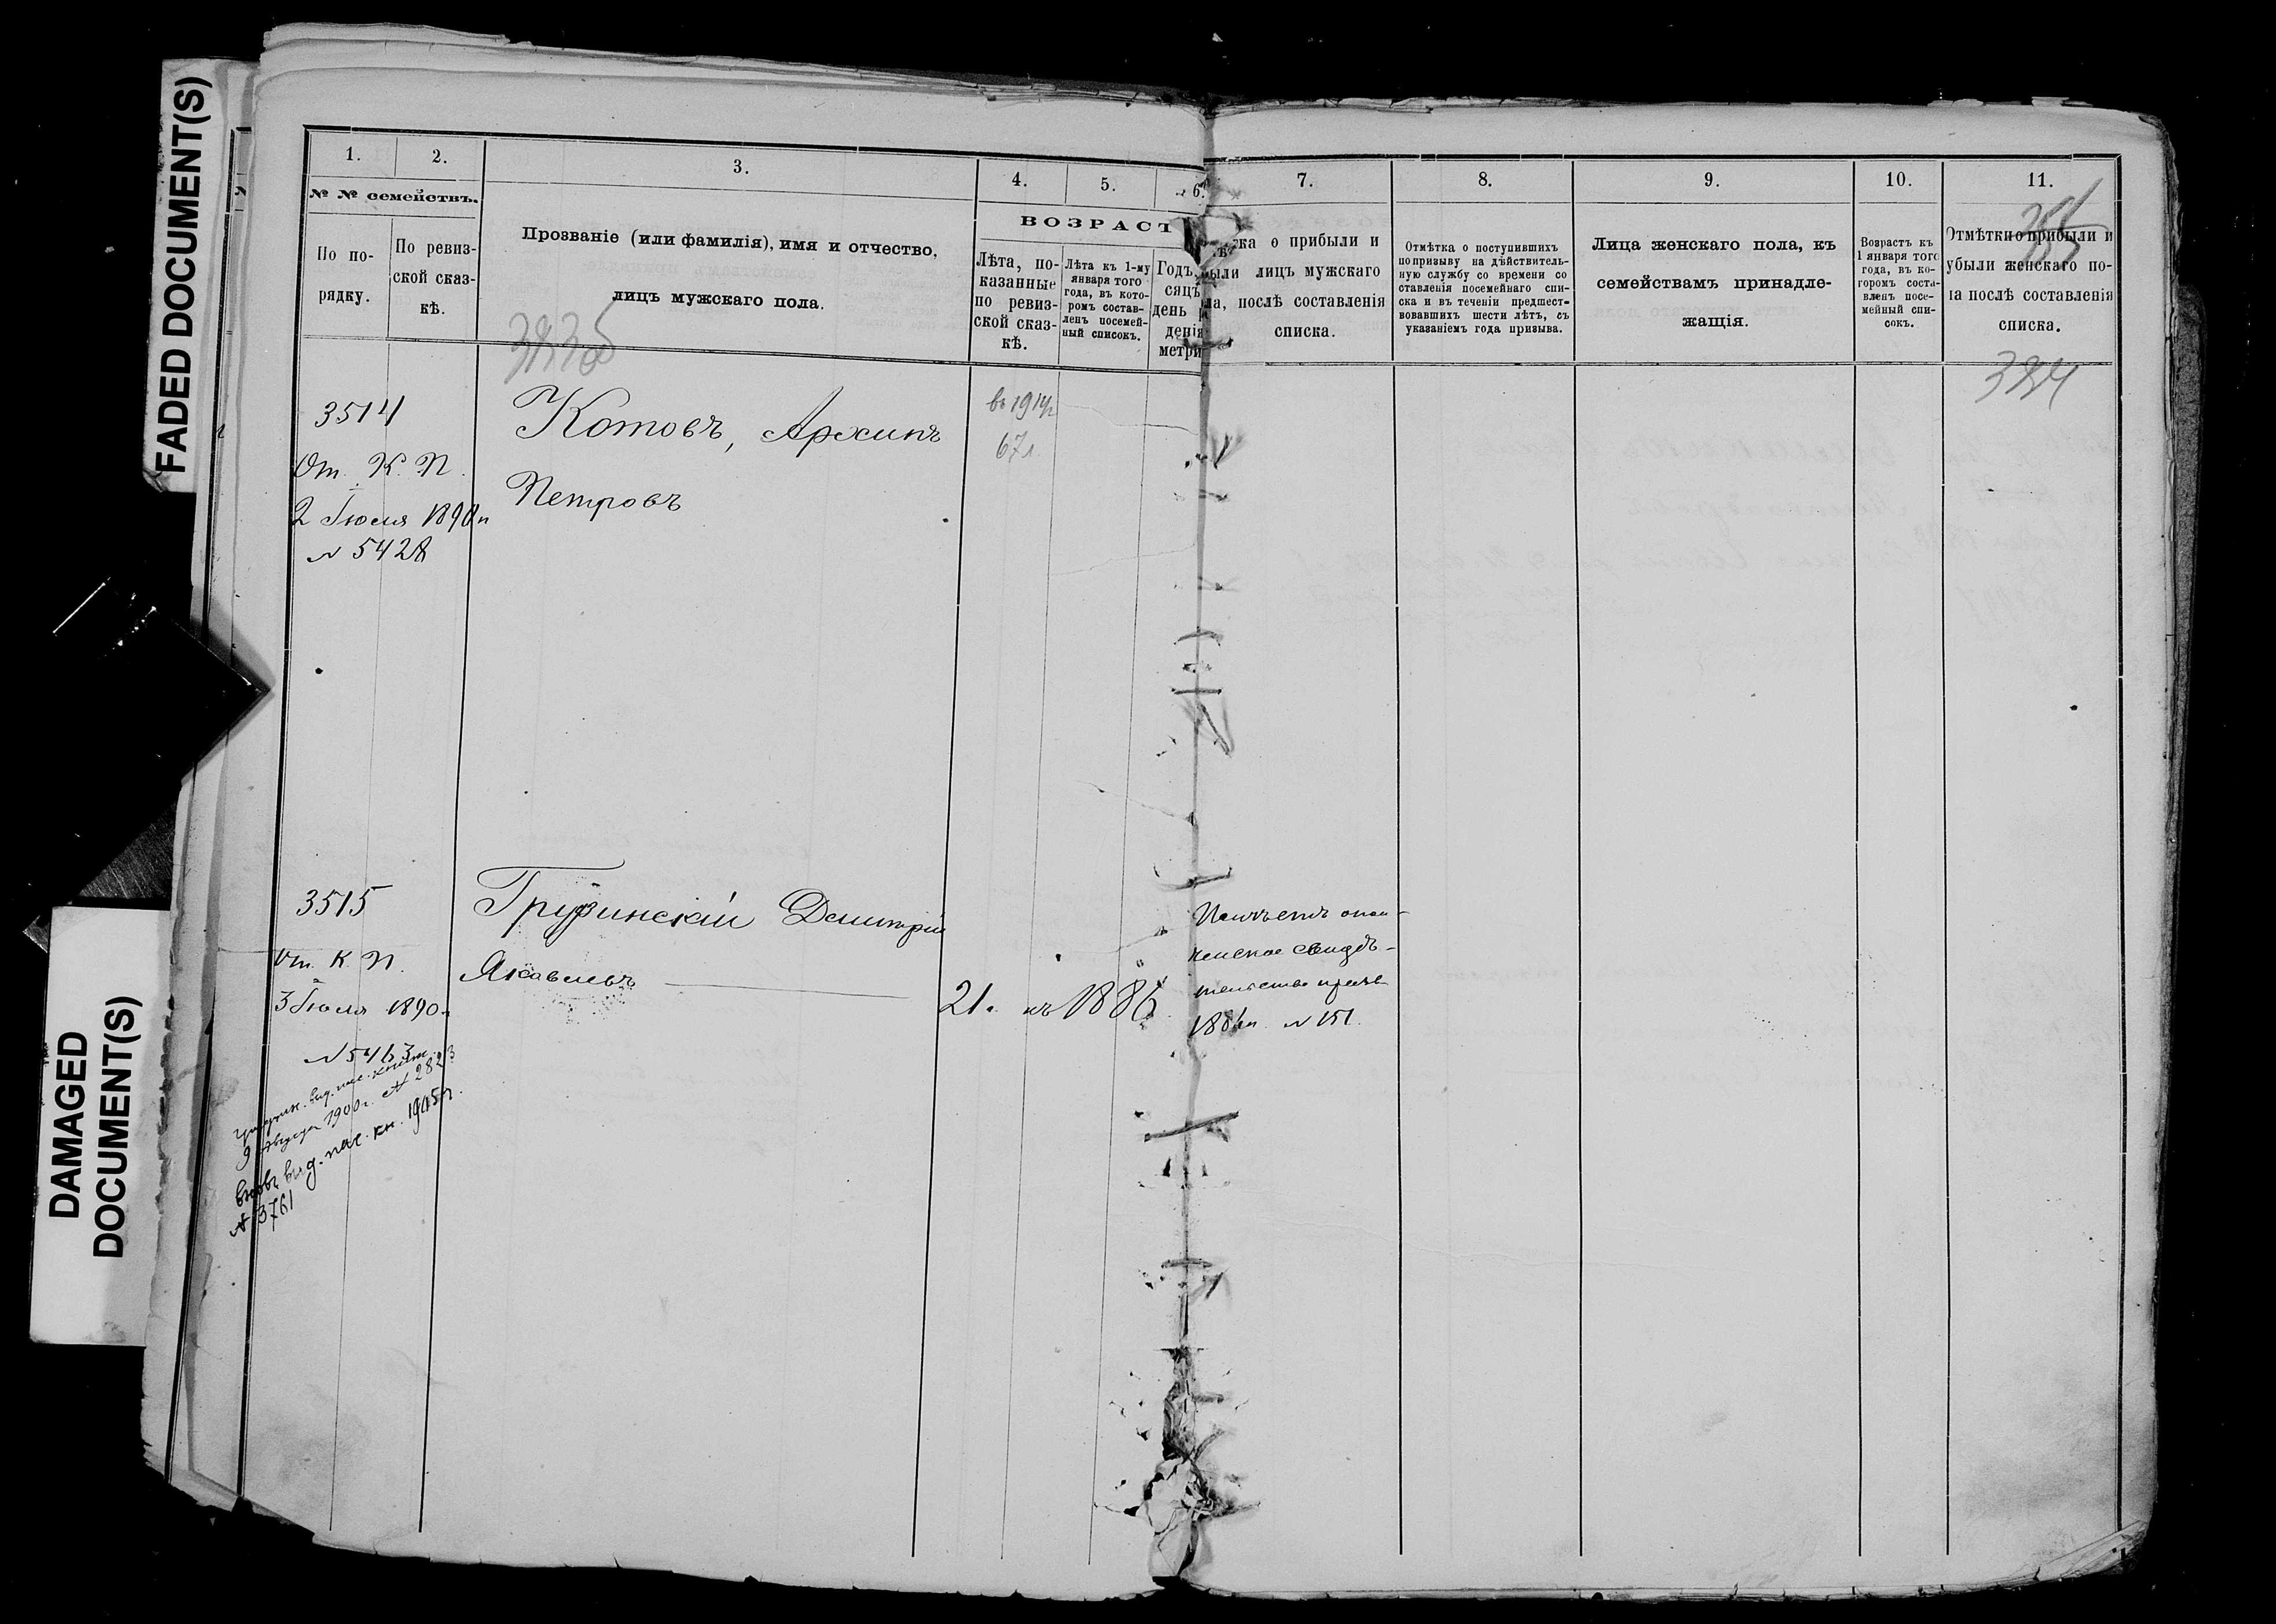 FADED DOCUMENT(S)
DAMAGED
DOCUMENT(S)
1.
2.
№ № семействъ.
По по-
рядку.
По ревиз-
ской сказ-
кѣ.
3.
Прозваніе (или фамилія), имя и отчество,
лицъ мужскаго пола.
4.
5.
6.
ВОЗРАСТ
Лѣта, по-
казанные
по ревиз-
ской сказ-
кѣ.
Лѣта къ 1-му
января того
года, въ кото-
ромъ состав-
ленъ посемей-
ный списокъ.
Годъ,
сяцъ
день
денія
метри
7.
ка о прибыли и
были лицъ мужскаго
ла, послѣ составленія
списка.
8.
Отмѣтка о поступившихъ
по призыву на дѣйствитель-
ную службу со времени со
ставленія посемейнаго спи-
ска и въ теченіи предшест-
вовавшихъ шести лѣтъ, съ
указаніемъ года призыва.
9.
Лица женскаго пола, къ
семействамъ принадле-
жащія.
10.
Возрастъ къ
1 января того
года, въ ко-
горомъ соста-
вленъ посе-
мейный спи-
сокъ.
11.
Отмѣтки о прибыли и
убыли женскаго по-
ла послѣ составленія
списка.
384
3514
От. К. П.
2 Іюля 1890 г.
№ 5428
Котовъ, Архипъ
Петровъ
въ 1914 г.
67 л.
3515
От. К. П.
3 Іюля 1890 г.
№ 5463
9 Августа 1900 г. № 2823
вновь выд. пас. кн. 1905 г.
№ 3761
Грузинскій Дмитрій
Яковлевъ
21. къ 1886
Имѣетъ опол-
ченское свидѣ-
тельство
№ 151.